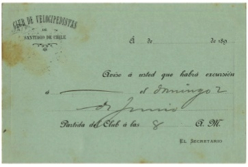 CLUB DE VELOCIPEDISTAS
DE
SANTIAGO DE CHILE
A de de 189
Aviso á usted que habrá excursión
á — el domingo 2
de Junio
Partida del Club á las 8 A. M.
EL SECRETARIO